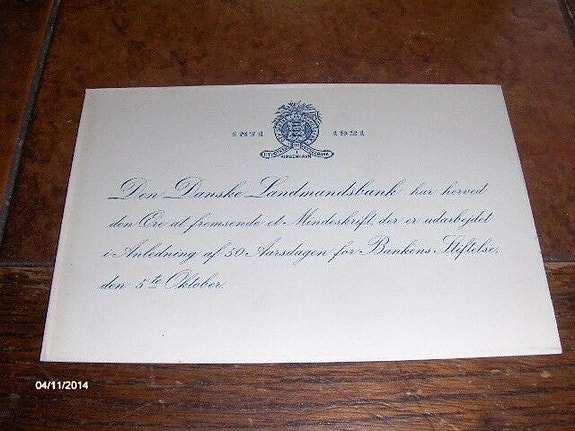 1871 1921
KJØBENHAVN
Den Danske Landmandsbank har herved
den Ære at fremsende et Mindeskrift, der er udarbejdet
i Anledning af 50 Aarsdagen for Bankens Stiftelse,
den 5te Oktober.
04/11/2014